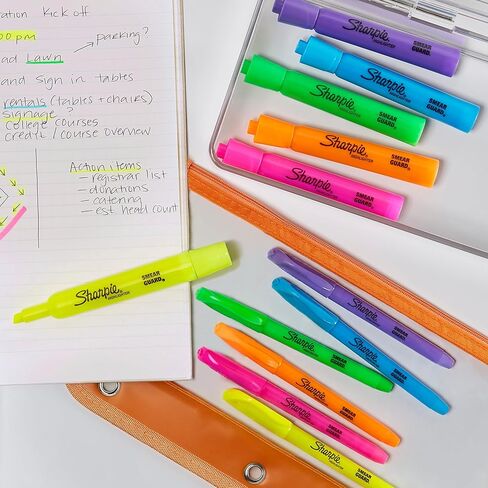 Kick off
00 pm
parking?
ad Lawn
and sign in tables
rentals (tables + chairs)
signage
college courses
credit / course overview
Action items
- registrar list
- donations
- catering
- est. head count
Sharpie
HIGHLIGHTER
SMEAR
GUARD
Sharpie
HIGHLIGHTER
SMEAR
GUARD
Sharpie
HIGHLIGHTER
SMEAR
GUARD
Sharpie
HIGHLIGHTER
SMEAR
GUARD
Sharpie
HIGHLIGHTER
SMEAR
GUARD
Sharpie
HIGHLIGHTER
SMEAR
GUARD
Sharpie
SMEAR
GUARD
Sharpie
SMEAR
GUARD
Sharpie
SMEAR
GUARD
Sharpie
SMEAR
GUARD
Sharpie
SMEAR
GUARD
Sharpie
SMEAR
GUARD